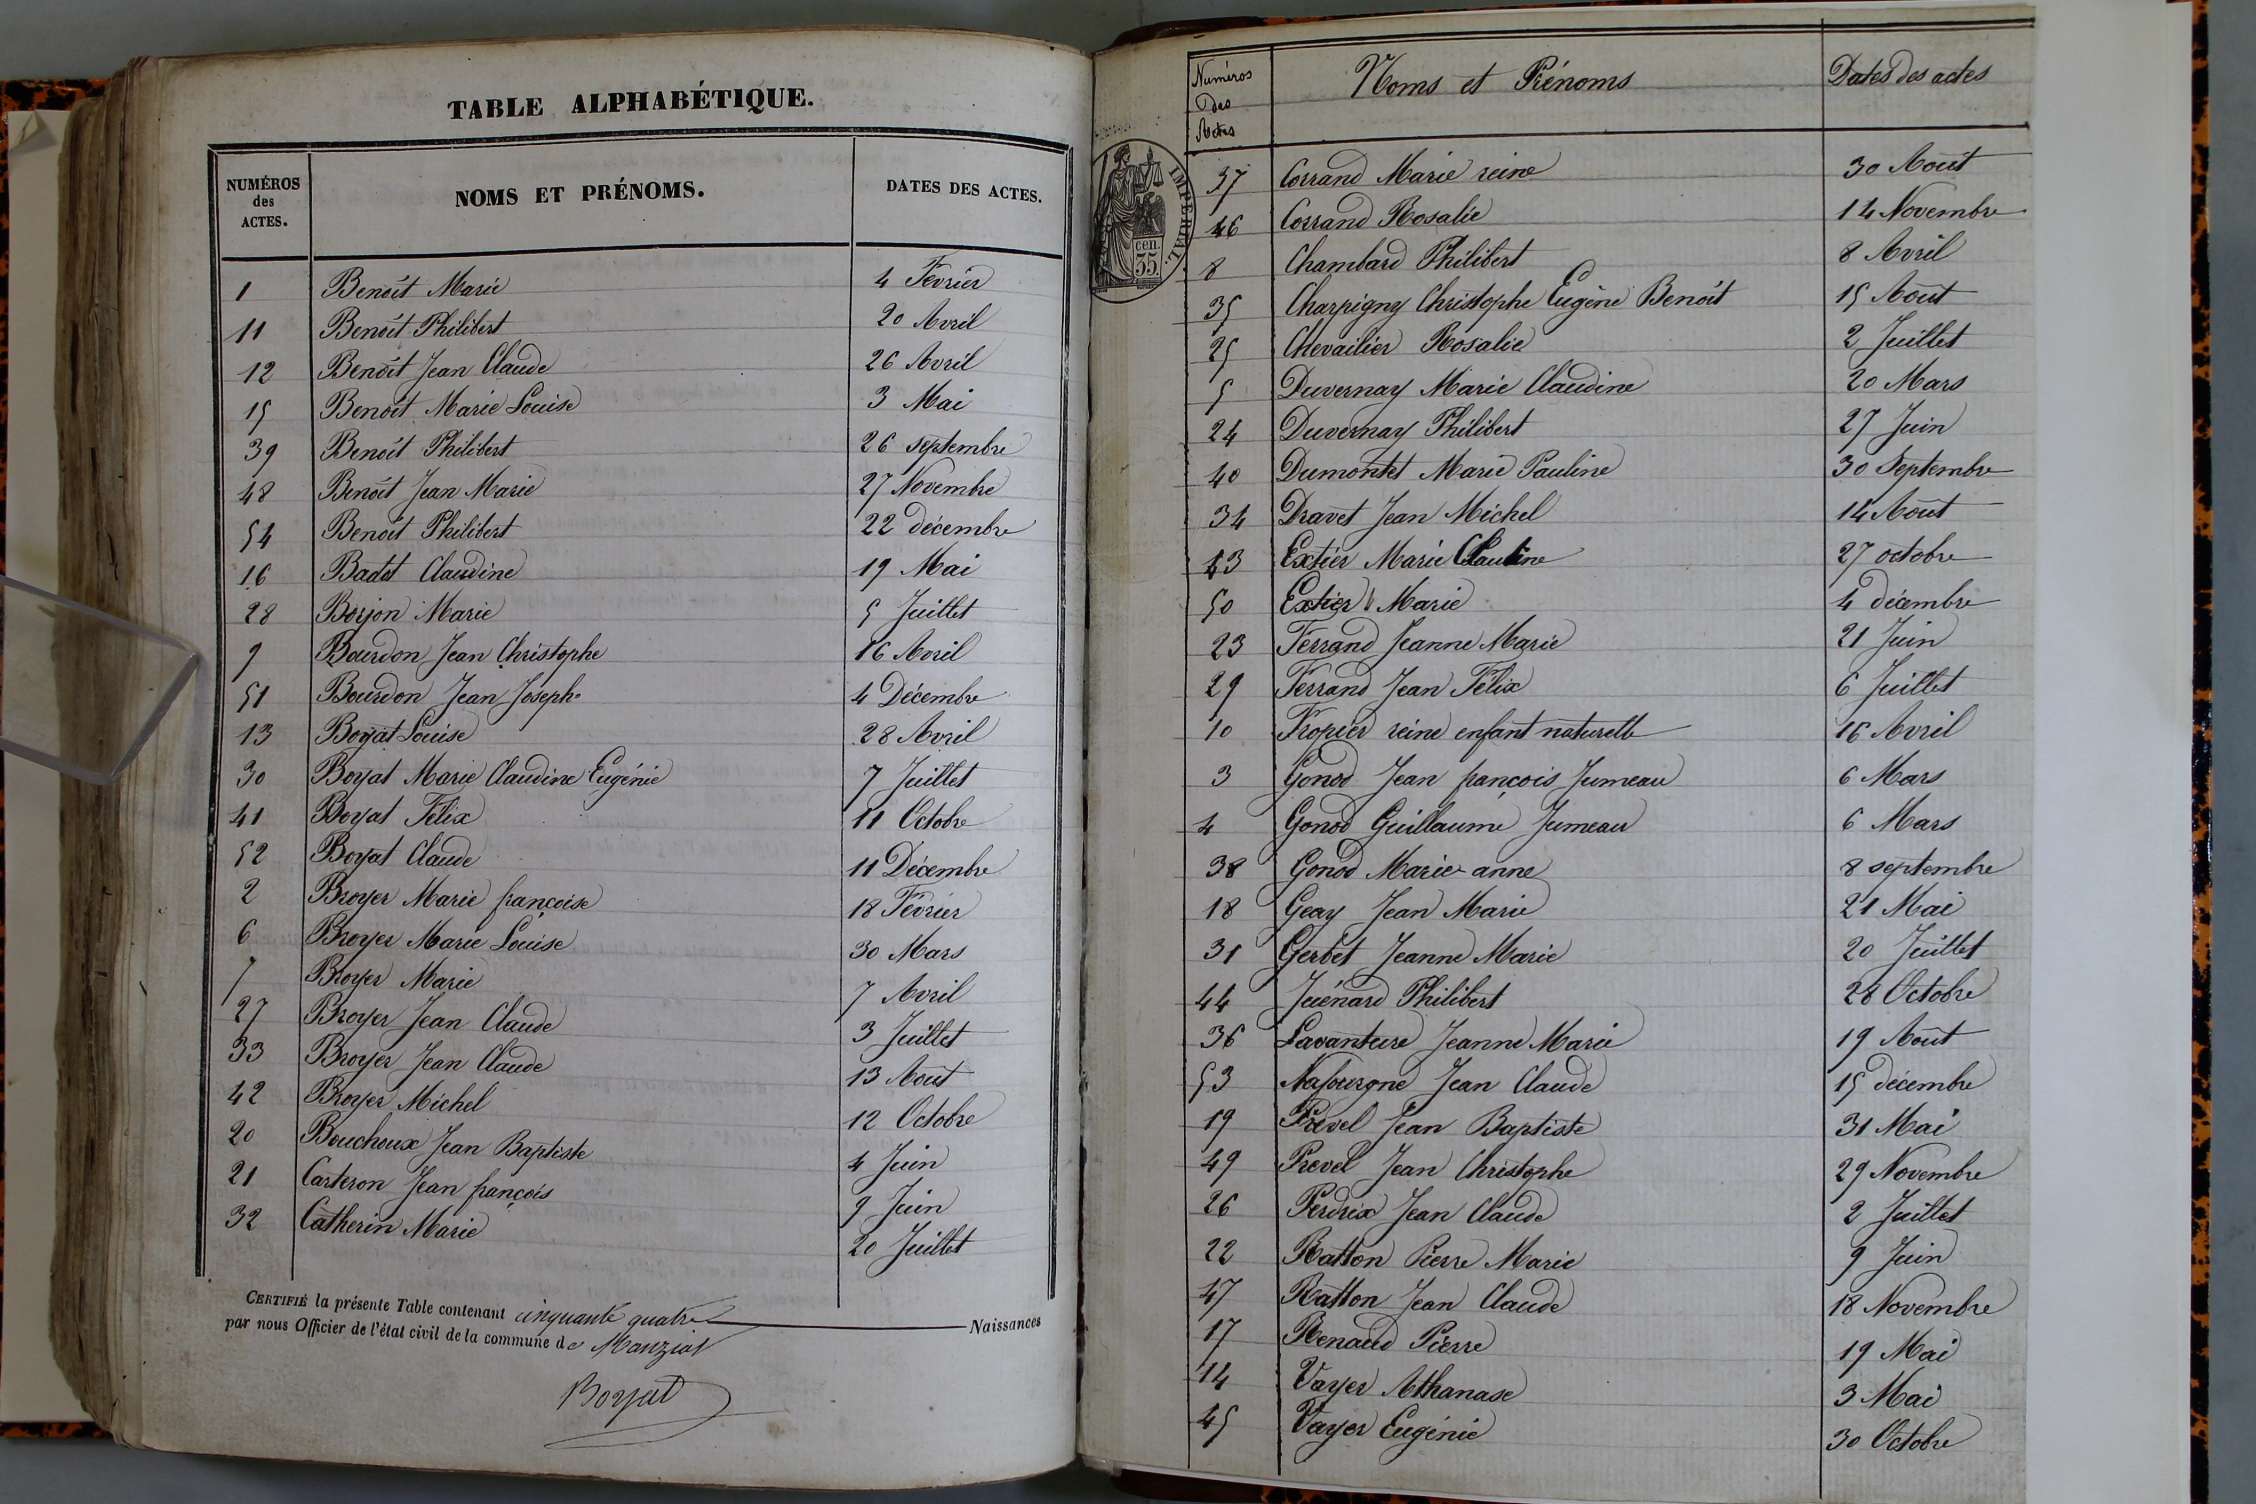 TABLE ALPHABÉTIQUE.
NUMÉROS des ACTES. NOMS ET PRÉNOMS. DATES DES ACTES.
1 Benoît Marie 4 Février
11 Benoît Philibert 20 Avril
12 Benoît Jean Claude 26 Avril
15 Benoît Marie Louise 3 Mai
39 Benoît Philibert 26 septembre
48 Benoît Jean Marie 27 Novembre
54 Benoît Philibert 22 décembre
16 Badet Claudine 19 Mai
28 Borjon Marie 5 Juillet
9 Bourdon Jean Christophe 16 Avril
51 Bourdon Jean Joseph 4 Décembre
13 Boyat Louise 28 Avril
30 Boyat Marie Claudine Eugénie 7 Juillet
41 Boyat Félix 11 Octobre
52 Boyat Claude 11 Décembre
2 Broyer Marie françoise 18 Février
6 Broyer Marie Louise 30 Mars
7 Broyer Marie 7 Avril
27 Broyer Jean Claude 3 Juillet
33 Broyer Jean Claude 13 Aout
42 Broyer Michel 12 Octobre
20 Bouchoux Jean Baptiste 4 Juin
21 Carteron Jean françois 9 Juin
32 Catherin Marie 20 Juillet
CERTIFIÉ la présente Table contenant cinquante quatre Naissances
par nous Officier de l'état civil de la commune de Manziat
Boyat
Numéros des Actes Noms et Prénoms Dates des actes
IMPERIAL
35 cen.
37 Corrand Marie reine 30 Août
46 Corrand Rosalie 14 Novembre
8 Chambard Philibert 8 Avril
35 Charpigny Christophe Eugène Benoît 15 Août
25 Chevailier Rosalie 2 Juillet
5 Duvernay Marie Claudine 20 Mars
24 Duvernay Philibert 27 Juin
40 Dumontet Marie Pauline 30 Septembre
34 Dravet Jean Michel 14 Août
43 Extier Marie 27 octobre
50 Extier Marie 4 décembre
23 Ferrand Jeanne Marie 21 Juin
29 Ferrand Jean Félix 6 Juillet
10 Fropier reine enfant naturelle 16 Avril
3 Gonod Jean françois Jumeau 6 Mars
4 Gonod Guillaume Jumeau 6 Mars
38 Gonod Marie anne 8 septembre
18 Geay Jean Marie 21 Mai
31 Gerbet Jeanne Marie 20 Juillet
44 Juénard Philibert 28 Octobre
36 Lavanture Jeanne Marie 19 Août
53 Jean Claude 15 décembre
19 Prevel Jean Baptiste 31 Mai
49 Prevel Jean Christophe 29 Novembre
26 Perdrix Jean Claude 2 Juillet
22 Ratton Pierre Marie 9 Juin
47 Ratton Jean Claude 18 Novembre
17 Renaud Pierre 19 Mai
14 Vayer Athanase 3 Mai
45 Vayer Eugénie 30 Octobre